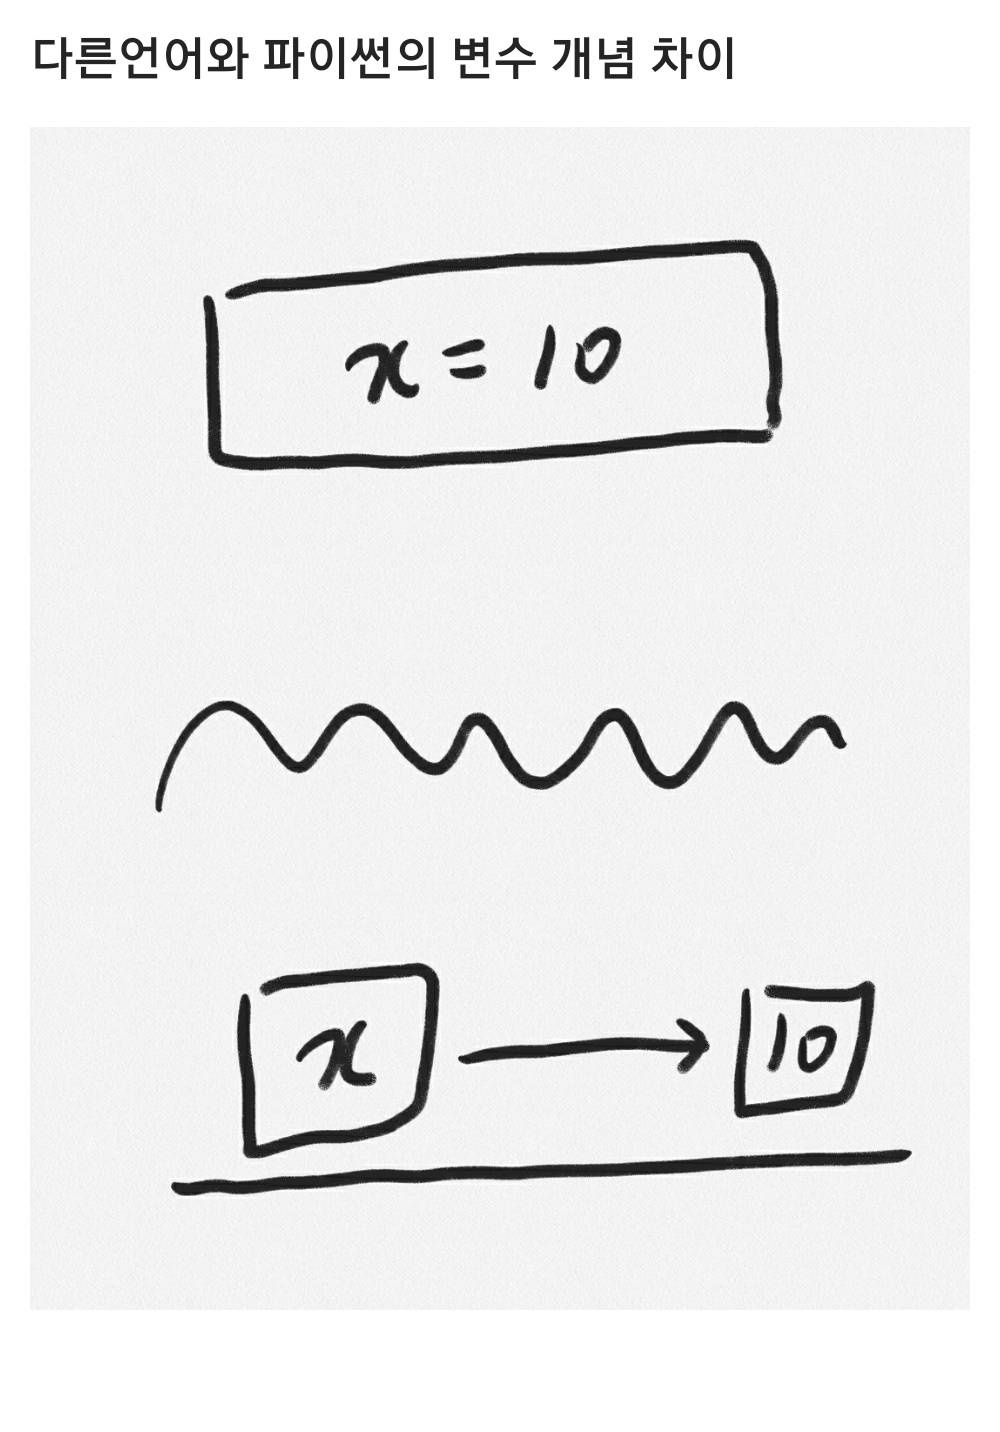 다른언어와 파이썬의 변수 개념 차이
x = 10
x → 10